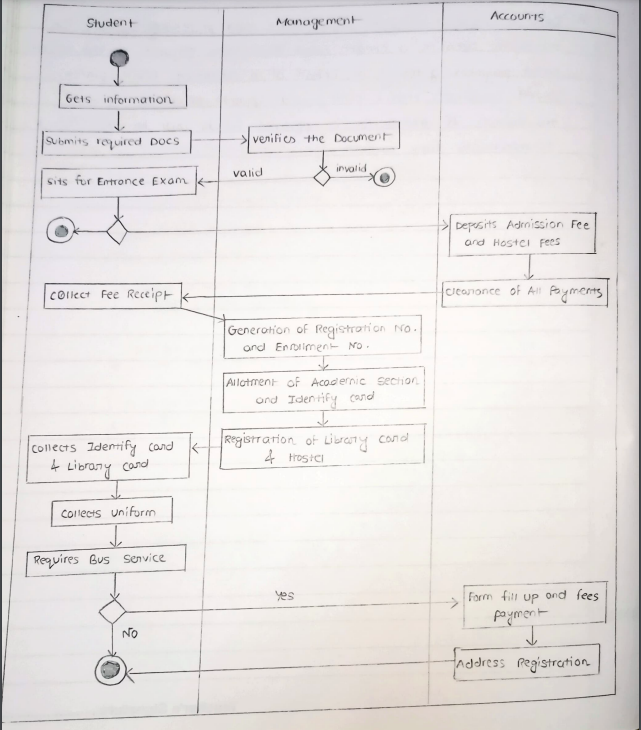 Student
Management
Accounts
Gets information
Submits required DOCS
verifies the Document
valid
invalid
Sits for Entrance Exam
Deposits Admission Fee
and Hostel Fees
Collect Fee Receipt
Clearance of All Payments
Generation of Registration No.
and Enrollment No.
Allotment of Academic Section
and Identify card
Registration of Library card
& Hostel
Collects Identify card
& Library card
Collects Uniform
Requires Bus Service
Yes
Form fill up and fees
payment
No
Address Registration